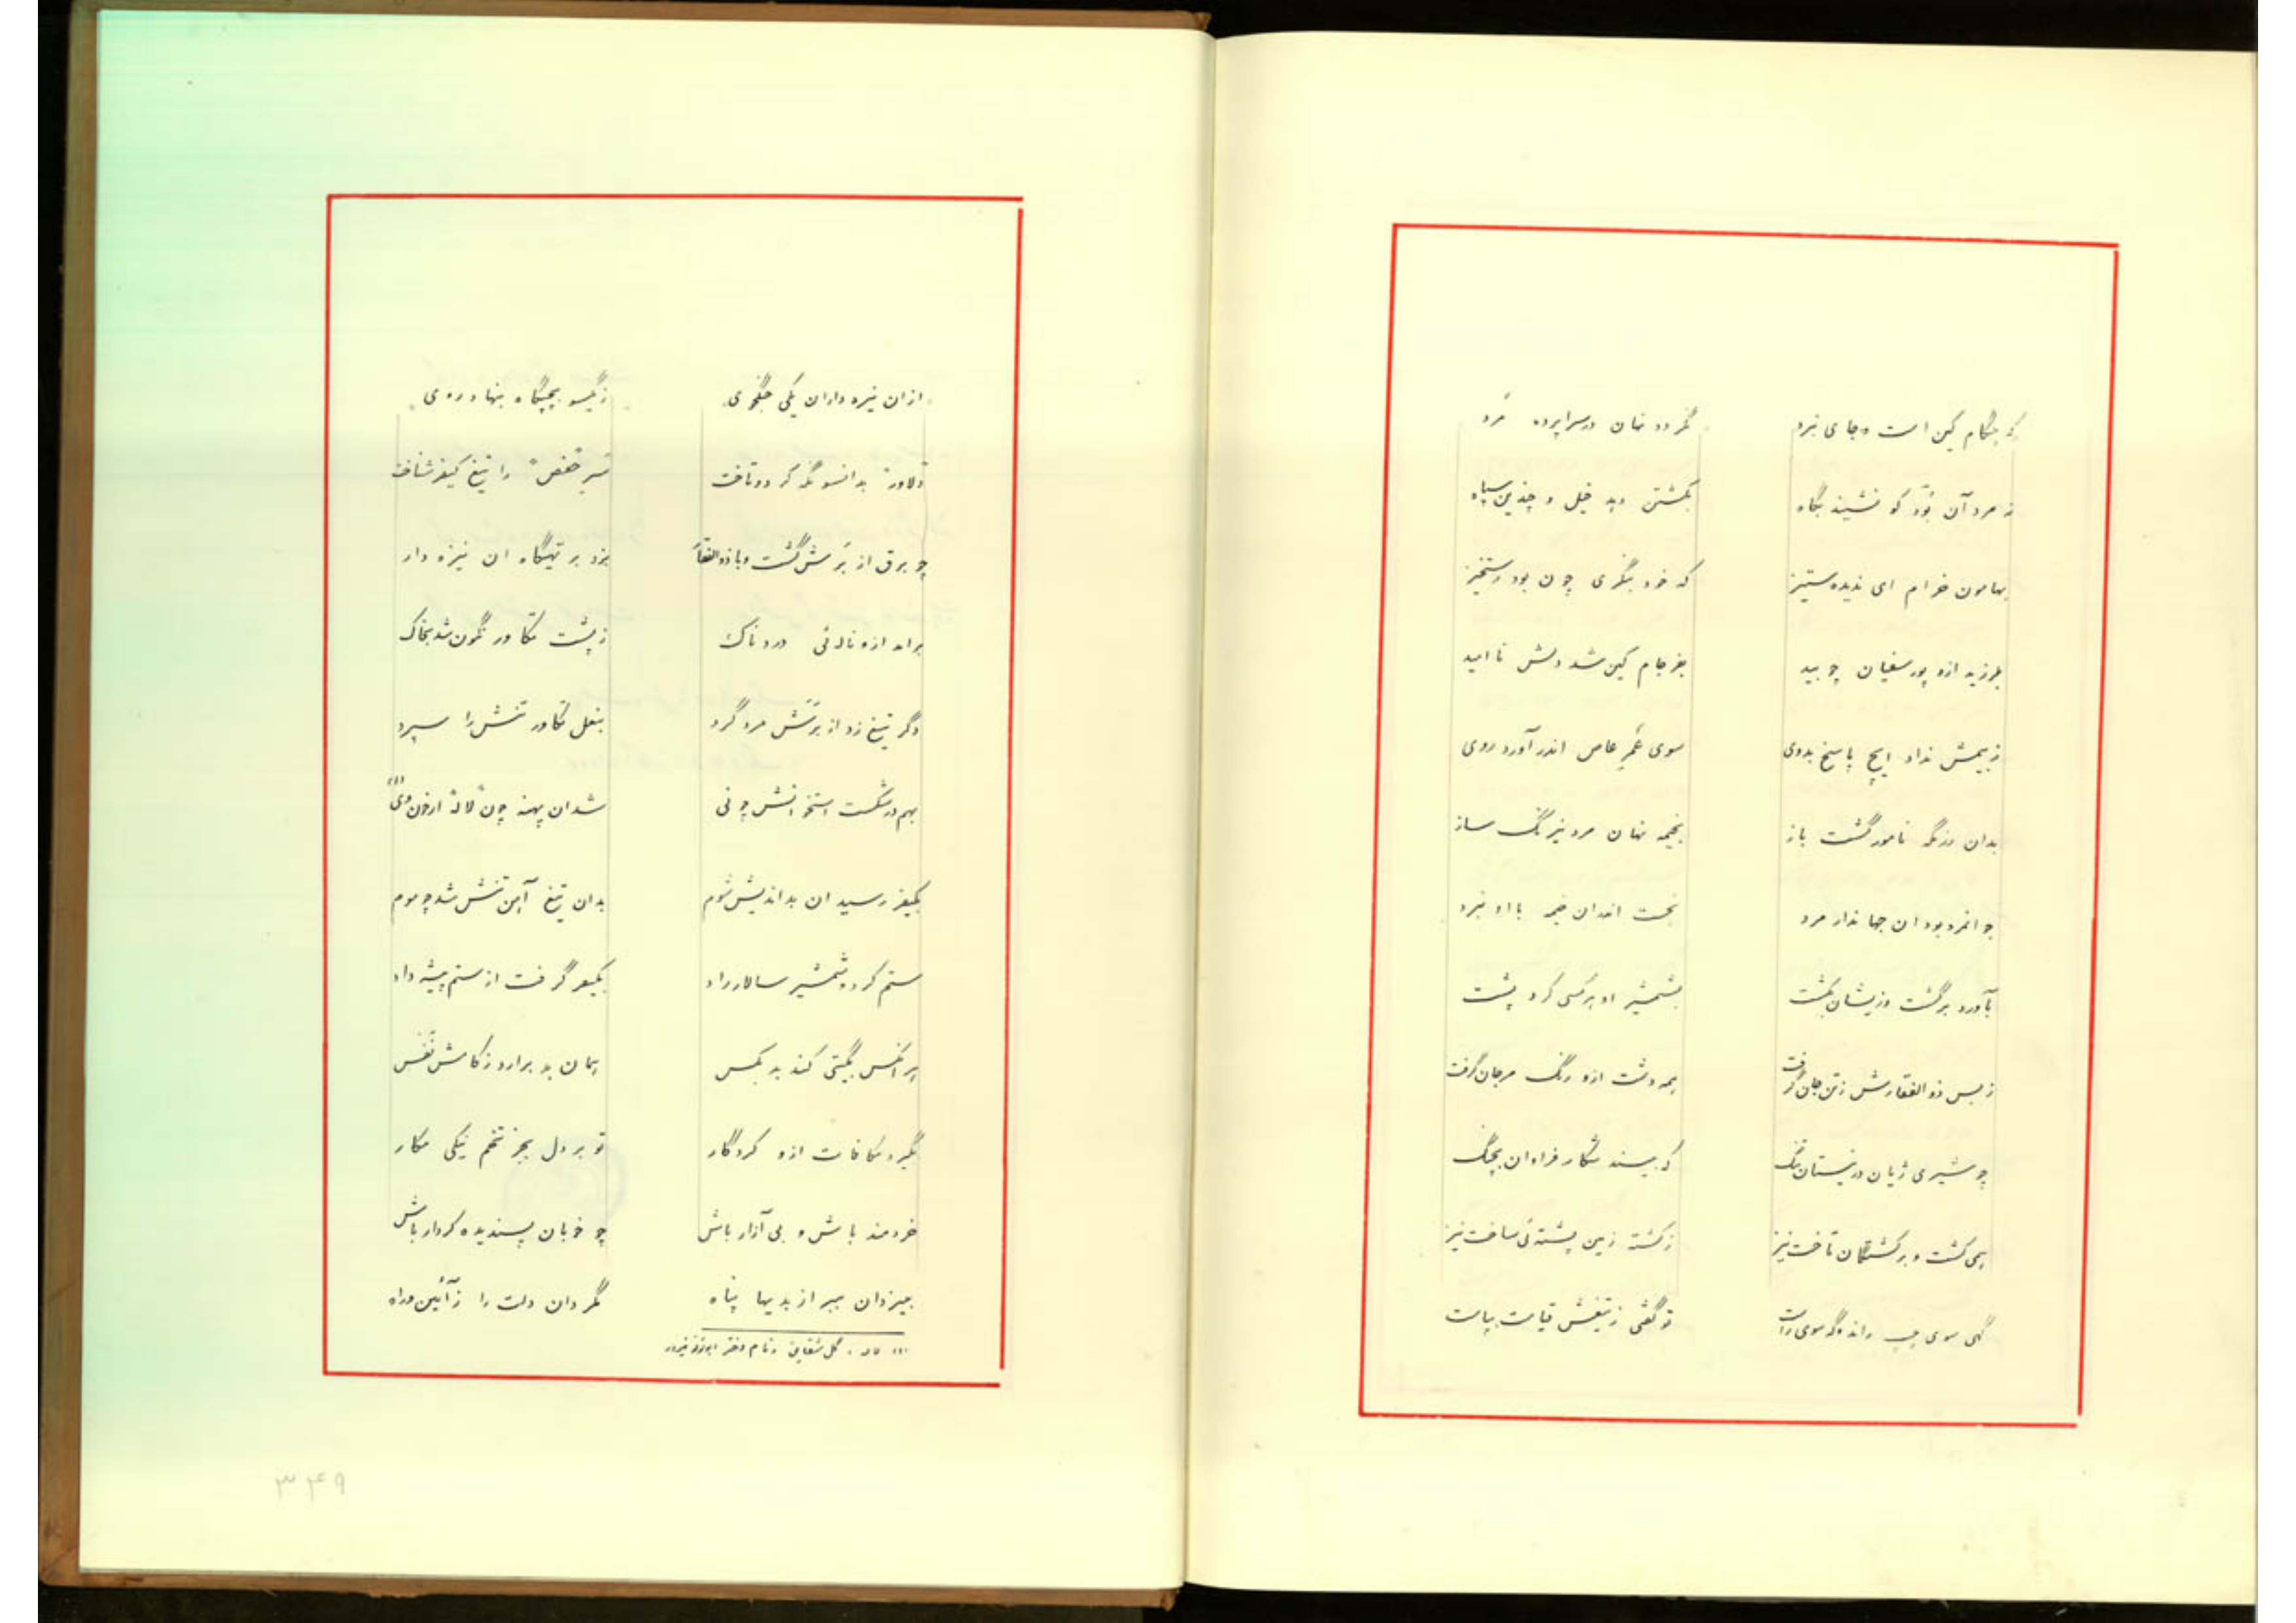 که هنگام کین است وجای نبرد نگردد نهان در سراپرده مرد
نه مرد آن بُوَد کو نشیند بگاه بکشتن دهد خیل و چندین سپاه
بهامون خرام ای ندیده ستیز که خود بنگری چون بود رستخیز
بلرزید ازو پور سفیان چو بید بفرجام کین شد دلش ناامید
ز بیمش نداد ایچ پاسخ بدوی سوی عَمرِ عاص اندر آورد روی
بدان رزمگه نامور گشت باز بخیمه نهان مرد نیرنگ ساز
جوانمرد بود ان جهاندار مرد نجست اندران خیمه با او نبرد
بآورد برگشت وزیشان بکشت بشمشیر او هر کسی کرد پشت
ز بس ذوالفقارش ز تن جان گرفت همه دشت ازو رنگ مرجان گرفت
چو شیری ژیان در نیستان تنگ که بیند شکار فراوان بچنگ
همی کشت و بر کشتگان تاخت نیز ز کشته زمین پشته‌ئی ساخت نیز
گهی سوی چپ راند و گه سوی راست تو گفتی ز تیغش قیامت بپاست
ازان نیزه داران یکی جنگجوی ز گیسو بپیچگاه بنهاد روی
دلاور بدانسو نگه کرد و تاخت سرِ حفص را تیغ کیفر شناخت
چو برق از بَرش گشت وبا ذوالفقار بزد بر تهیگاه ان نیزه دار
برامد ازو ناله‌ئی دردناک ز پشت تکاور نگون شد بخاک
دگر تیغ زد از بَرَش مرد گرد بنعل تکاور تنش را سپرد
بهم در شکست استخوانش چو نی شد ان پهنه چون "لاله" از خون وی (۱)
بکیفر رسید ان بداندیش شوم بدان تیغ آهن تنش شد چو موم
ستم کرد و شمشیر سالار راد بکیفر گرفت از ستم پیشه داد
هر انکس بگیتی کند بد بکس همان بد برارد ز کامش نفس
بگیرد مکافات ازو کردگار تو بر دل بجز تخم نیکی مکار
خردمند باش و بی آزار باش چو خوبان پسندیده کردار باش
بیزدان ببر از بدیها پناه مگردان دلت را ز آئین و راه
(۱) لاله : گل شقایق و نام دختر
۳۴۹